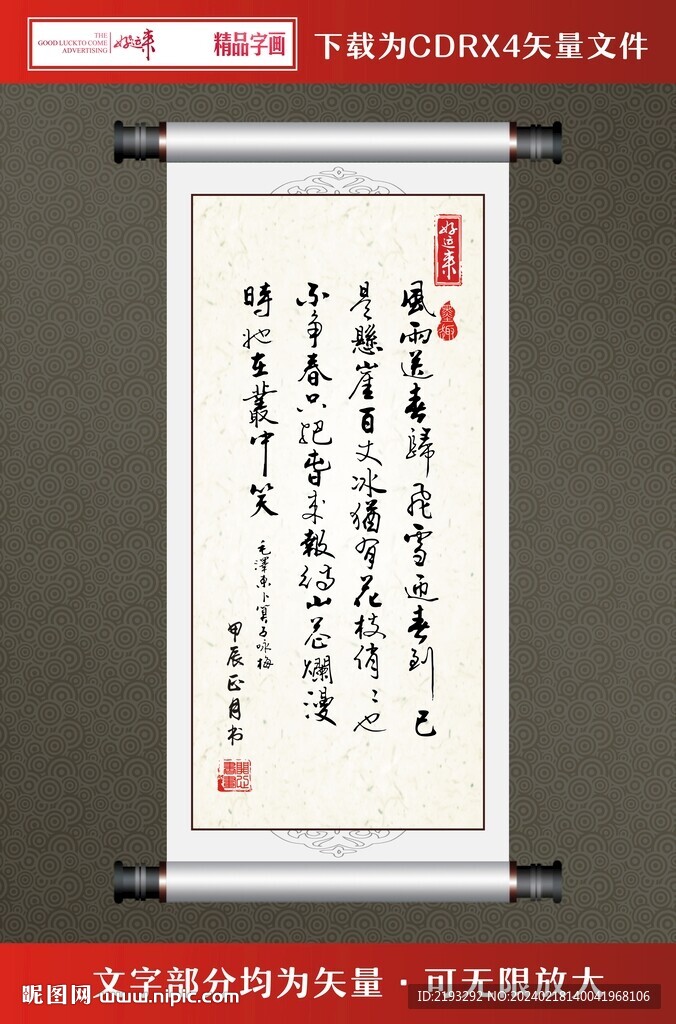 THE
GOOD LUCKTO COME
ADVERTISING
好运来
精品字画
下载为CDRX4矢量文件
好运来
風雨送春歸飛雪迎春到已
是懸崖百丈冰猶有花枝俏〻也
不争春只把春来報待山花爛漫
時她在叢中笑
毛澤東卜算子咏梅
甲辰正月书
文字部分均为矢量·可无限放大
昵图网 www.nipic.com
ID:2193292 NO:20240218140041968106